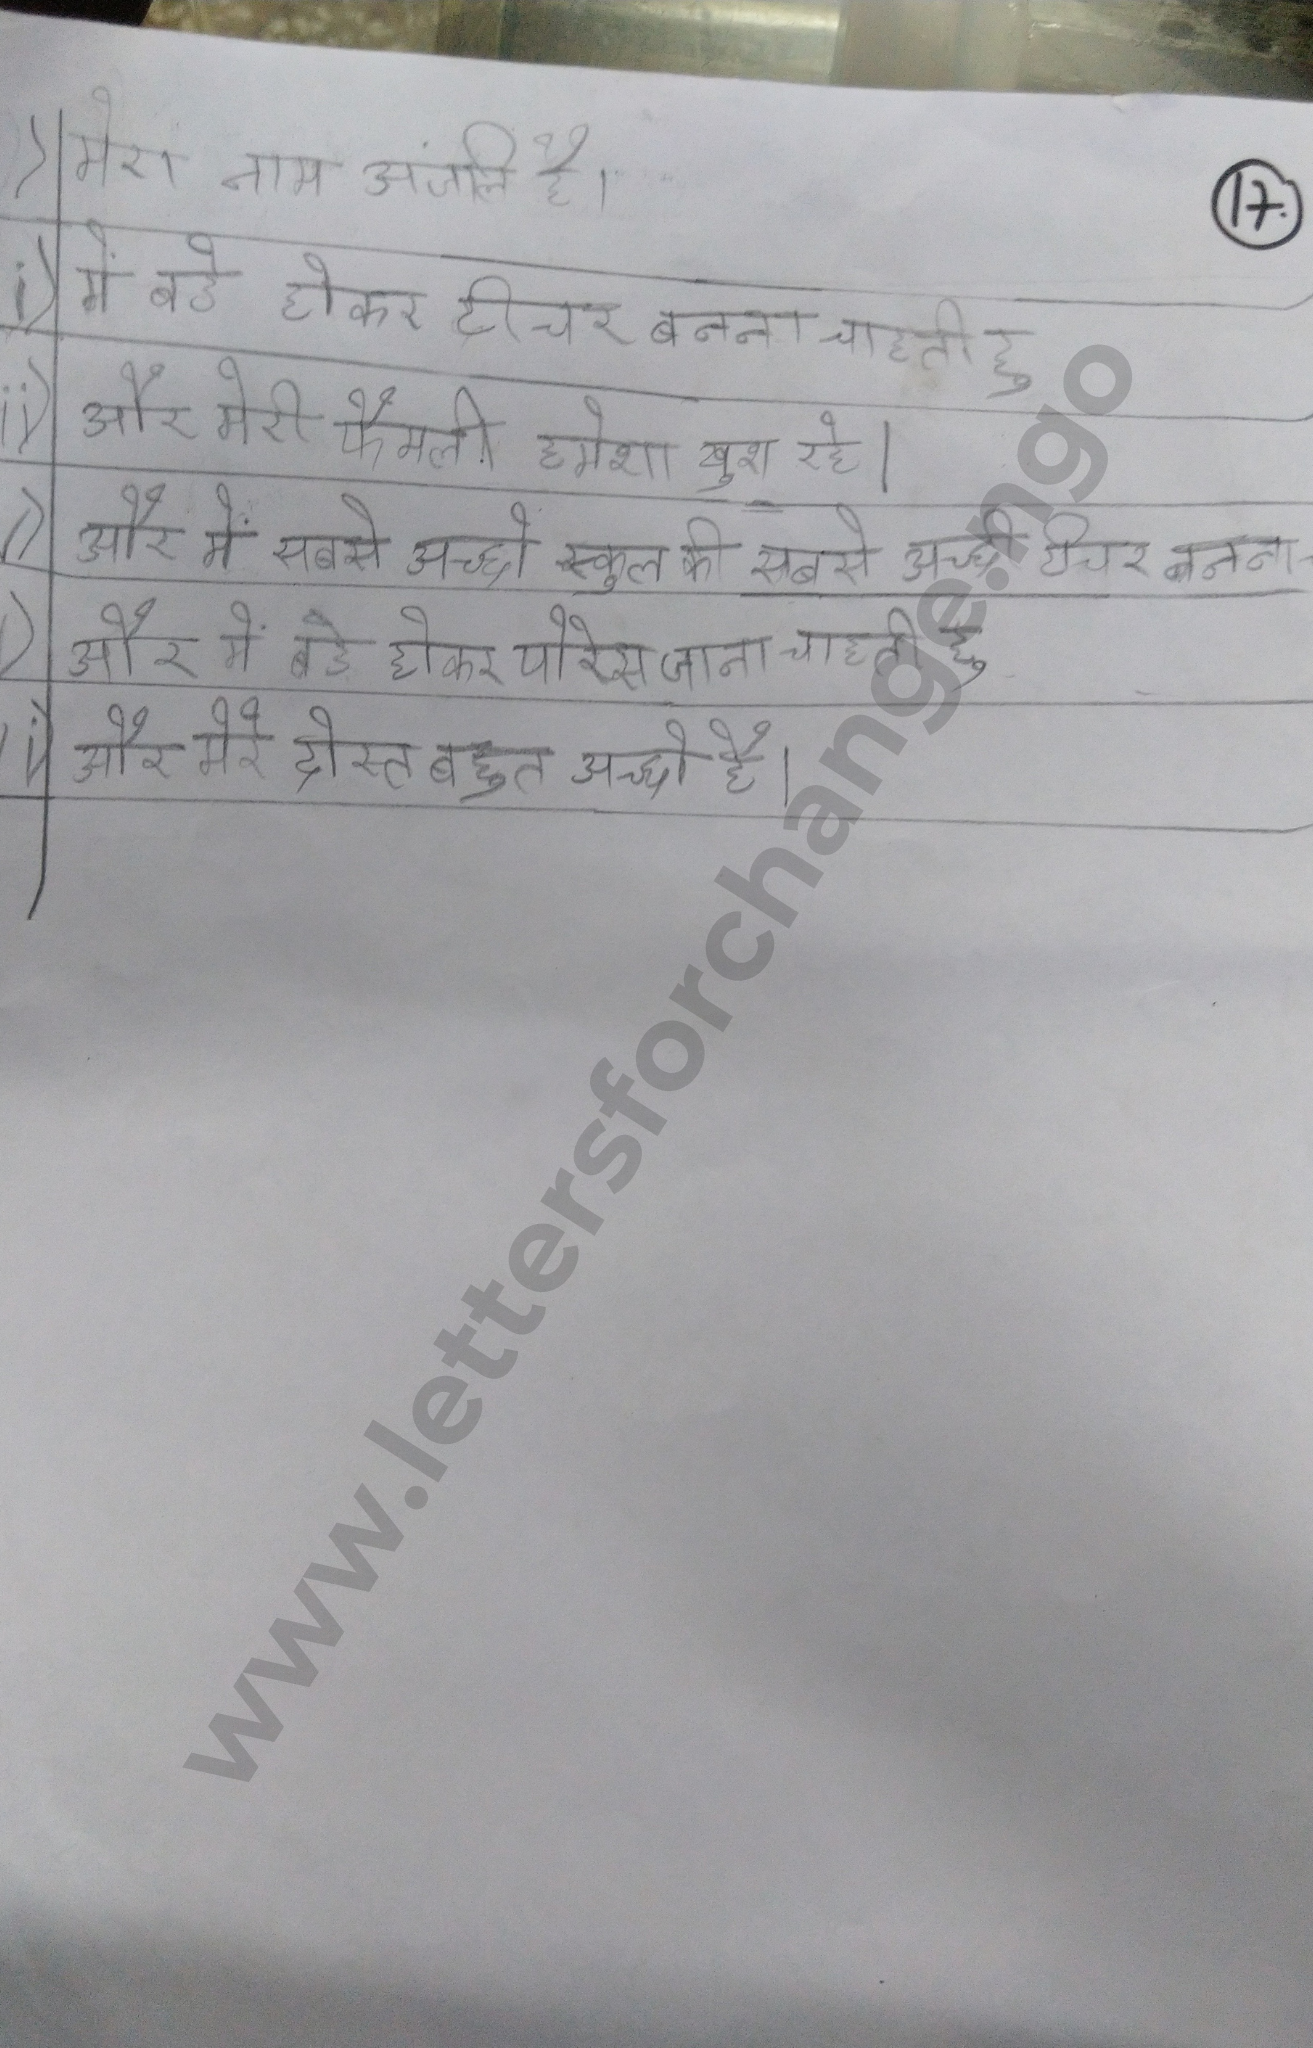 ) मेरा नाम अंजलि है।
17.
i) में बडे होकर टीचर बनना चाहती हु
ii) और मेरी फैमली हमेशा खुश रहे।
) और में सबसे अच्छे स्कुल की सबसे अच्छी टीचर बनना
) और में बडे होकर पेरिस जाना चाहती हु
i) और मेरे दोस्त बहुत अच्छे है।
www.lettersforchange.ngo